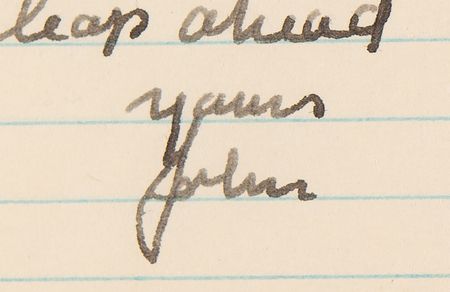 leap ahead
yours
John